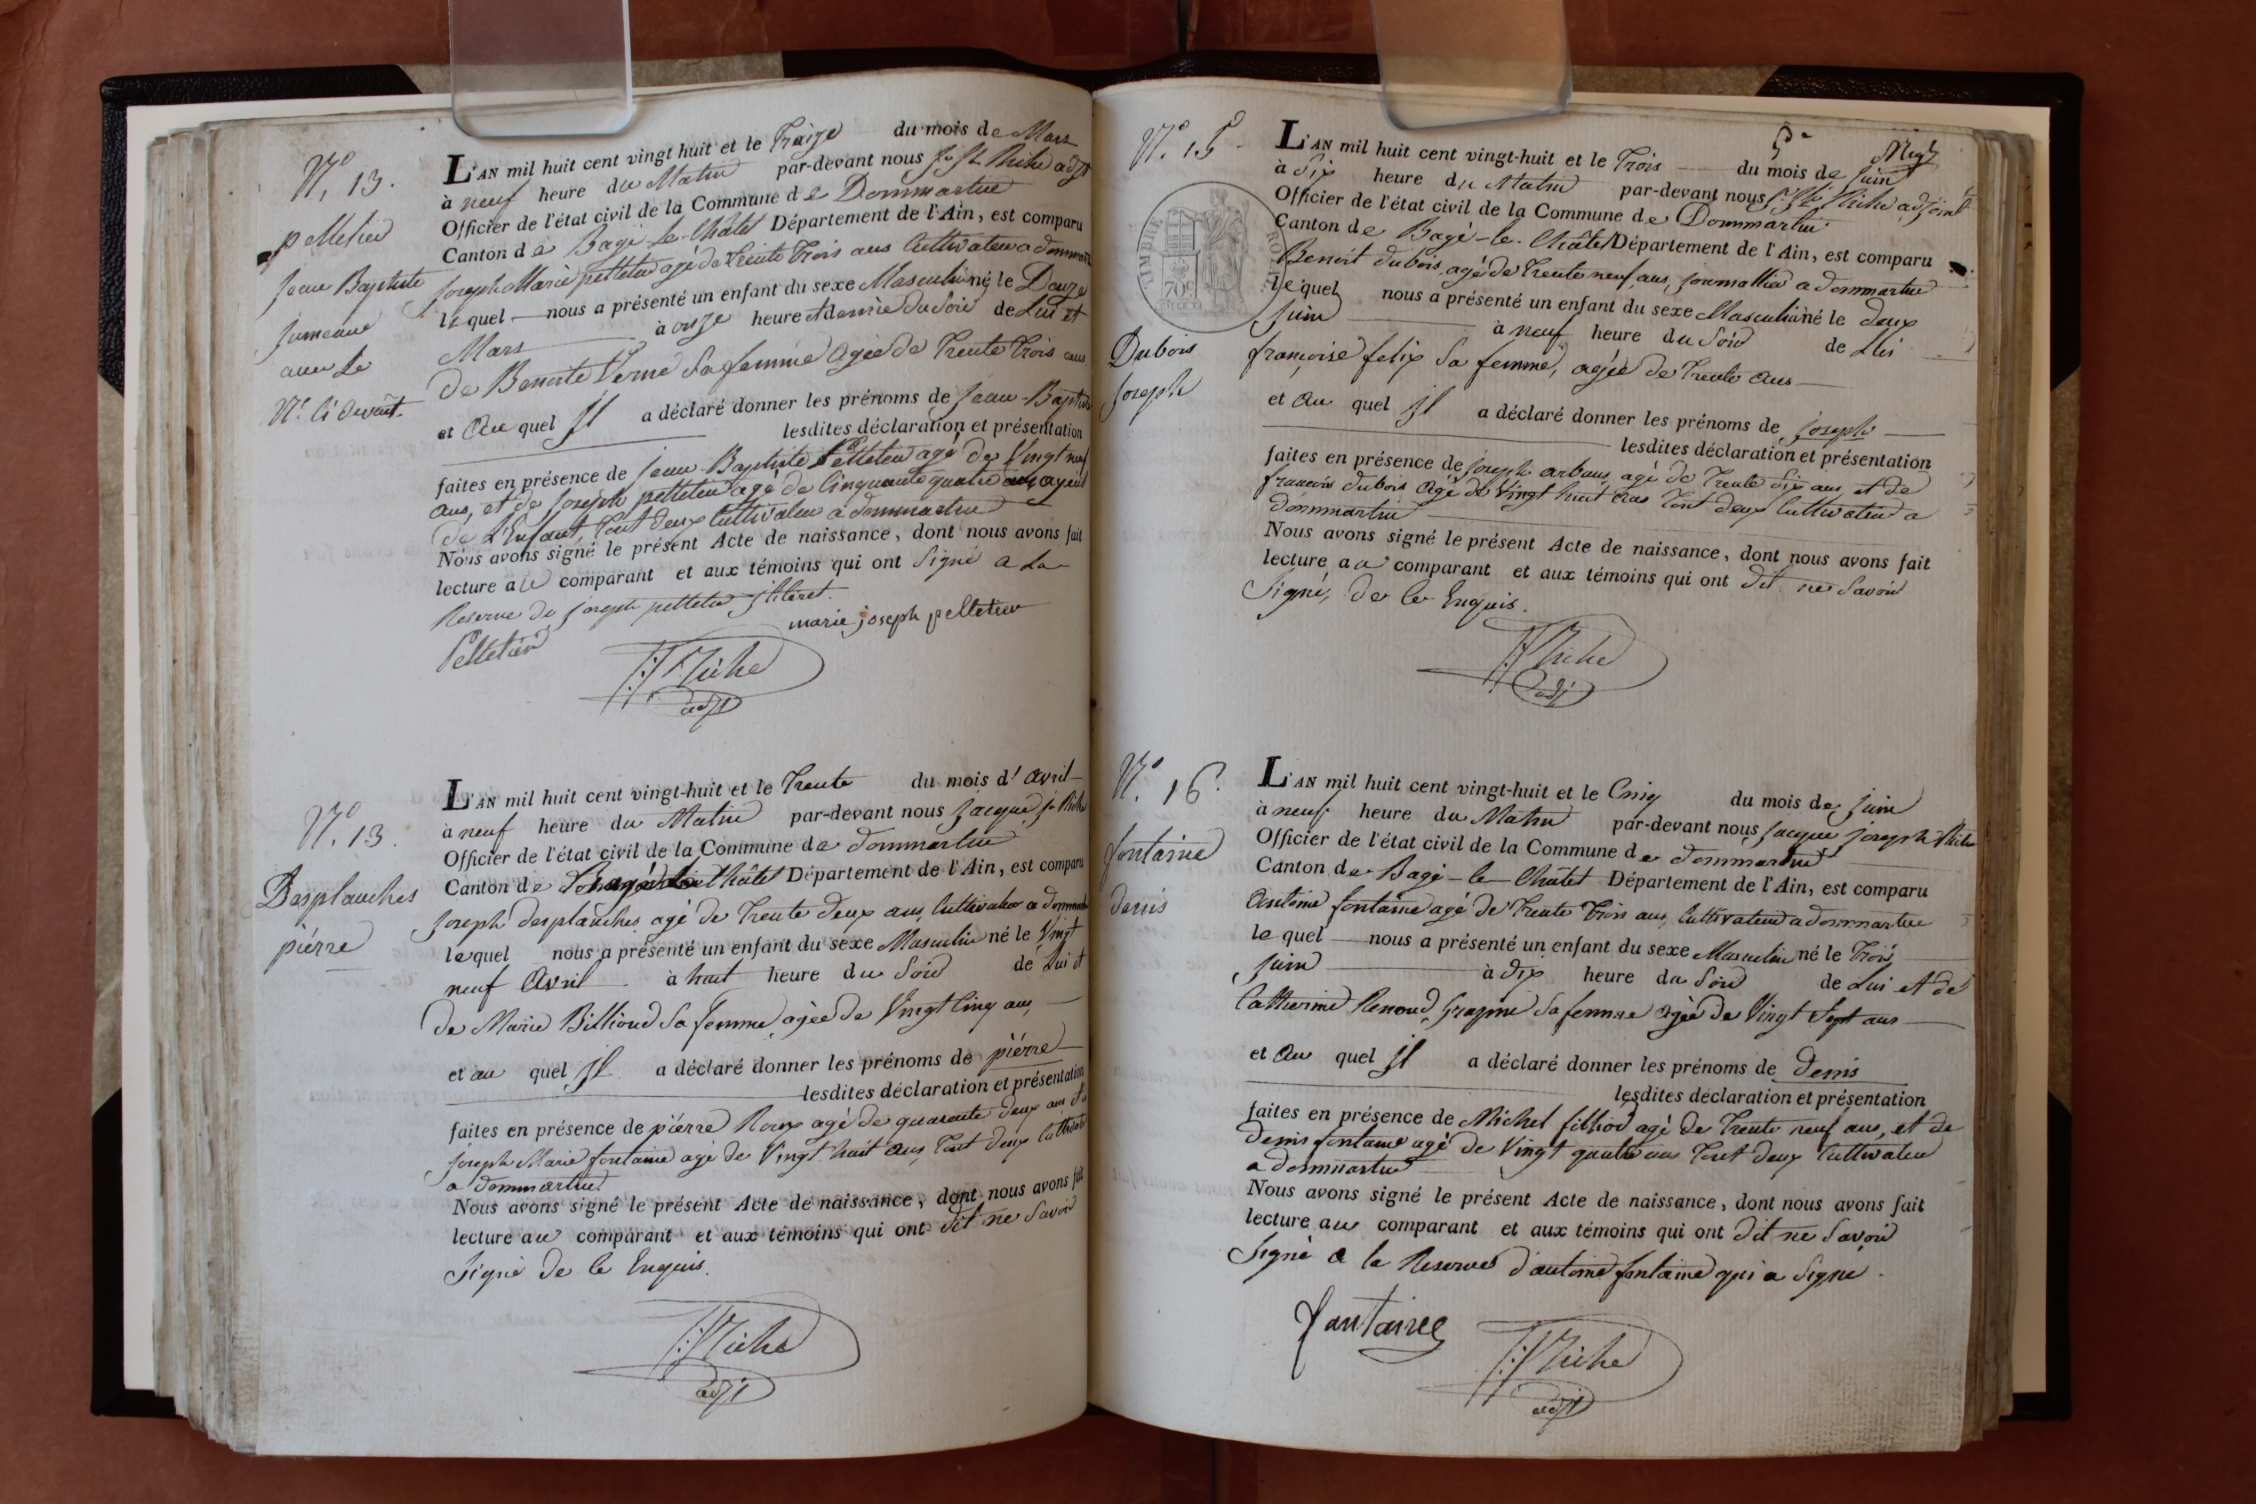 N.º 13.
pelletier
Jean Baptiste
jumeaux
avec le
N.º ci devant.
L'AN mil huit cent vingt huit et le Treize du mois de Mars
à neuf heure du Matin par-devant nous Jq. Jh. Riche adjt
Officier de l'état civil de la Commune de Dommartin
Canton de Bagé-le-Châtel Département de l'Ain, est comparu
Joseph Marie pelletier agé de trente trois ans Cultivateur a dommartin
lequel nous a présenté un enfant du sexe Masculin né le Douze
Mars à onze heure et demie du Soir de Lui et
de Benoite Verne Sa femme agée de Trente Trois ans
et au quel Jl a déclaré donner les prénoms de Jean-Baptiste
lesdites déclaration et présentation
faites en présence de jean Baptiste Pelletier agé de Vingt neuf
ans, et de Joseph pelletier agé de Cinquante quatre ans ayeul
de L'Enfant, Tout deux Cultivateur a dommartin
Nous avons signé le présent Acte de naissance, dont nous avons fait
lecture au comparant et aux témoins qui ont Signé a La
Reserve de joseph pelletier jlliteret.
marie joseph pelletier
Pelletier
J:J Riche
adjt
N.º 13.
Desplanches
piérre
L'AN mil huit cent vingt-huit et le Trente du mois d'avril
à neuf heure du Matin par-devant nous Jacque jh Riche
Officier de l'état civil de la Commune de dommartin
Canton de Châtel Département de l'Ain, est comparu
Joseph desplanches agé de Trente deux ans Cultivateur a dommartin
lequel nous a présenté un enfant du sexe Masculin né le Vingt
neuf Avril à huit heure du Soir de Lui et
de Marie Billioud Sa femme agée de Vingt Cinq ans,
et au quel Jl a déclaré donner les prénoms de piérre
lesdites déclaration et présentation
faites en présence de piérre Roux agé de quarante deux ans et de
Joseph Marie fontaine agé de Vingt huit ans, Tout deux Cultivateur
a dommartin
Nous avons signé le présent Acte de naissance, dont nous avons fait
lecture au comparant et aux témoins qui ont dit ne Savoir
Signé de Ce Enquis.
J:J Riche
adjt
N.º 15
TIMBRE ROYAL
70c
Dubois
Joseph
L'AN mil huit cent vingt-huit et le Trois du mois de juin
à Dix heure du Matin par-devant nous Jq. Jh. Riche adjoint
Officier de l'état civil de la Commune de Dommartin
Canton de Bagé-le-Châtel Département de l'Ain, est comparu
Benoit dubois agé de Trente neuf ans, journallier a dommartin
lequel nous a présenté un enfant du sexe Masculin né le deux
juin à neuf heure du Soir de Lui
françoise felix Sa femme, agée de Trente ans
et au quel Jl a déclaré donner les prénoms de joseph
lesdites déclaration et présentation
faites en présence de joseph arband agé de Trente Six ans et de
francois dubois agé de Vingt huit ans Tout deux Cultivateur a
dommartin
Nous avons signé le présent Acte de naissance, dont nous avons fait
lecture au comparant et aux témoins qui ont dit ne Savoir
Signé, de Ce Enquis.
J:J Riche
adjt
N.º 16.
fontaine
denis
L'AN mil huit cent vingt-huit et le Cinq du mois de juin
à neuf heure du Matin par-devant nous Jacque joseph Riche
Officier de l'état civil de la Commune de dommartin
Canton de Bagé-le-Châtel Département de l'Ain, est comparu
antoine fontaine agé de Trente Trois ans, Cultivateur a dommartin
lequel nous a présenté un enfant du sexe Masculin né le Trois
juin à Dix heure du Soir de Lui et de
Catherine Renoud Grapin Sa femme agée de Vingt Sept ans
et au quel Jl a déclaré donner les prénoms de denis
lesdites déclaration et présentation
faites en présence de Michel filliod agé de Trente neuf ans, et de
Denis fontaine agé de Vingt quatre ans Tout deux Cultivateur
a dommartin
Nous avons signé le présent Acte de naissance, dont nous avons fait
lecture au comparant et aux témoins qui ont dit ne Savoir
Signé a la Reserve d'antoine fontaine qui a Signé.
fontaine
J:J Riche
adjt